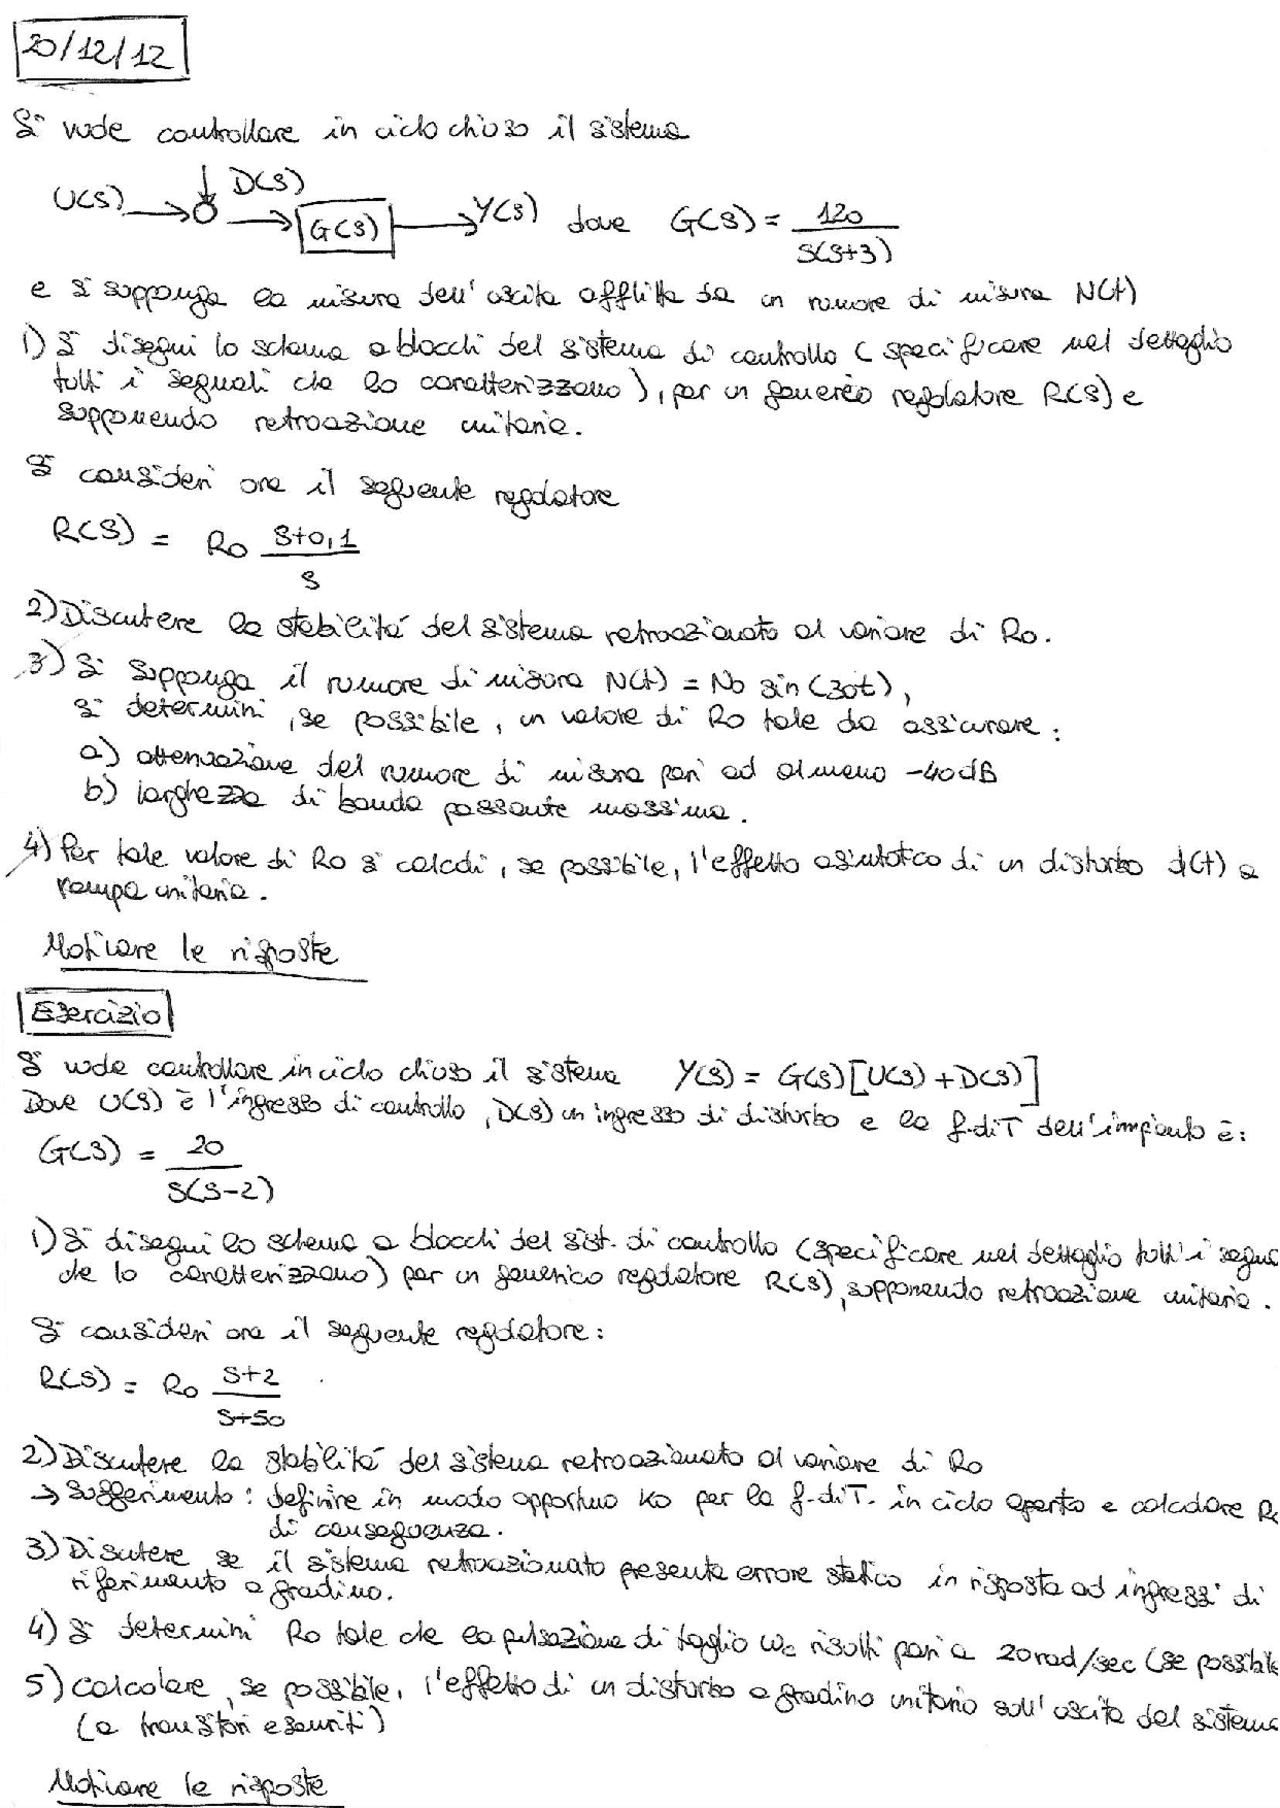 20/12/12
Si vuole controllare in ciclo chiuso il sistema
U(S) D(S) G(S) Y(S) dove G(S) = 120 / S(S+3)
e si supponga la misura dell'uscita afflitta da un rumore di misura N(t)
1) Si disegni lo schema a blocchi del sistema di controllo (specificare nel dettaglio
tutti i segnali che lo caratterizzano), per un generico regolatore R(S) e
supponendo retroazione unitaria.
Si consideri ora il seguente regolatore
R(S) = Ro S+0,1 / S
2) Discutere la stabilità del sistema retroazionato al variare di Ro.
3) Si supponga il rumore di misura N(t) = No sin(30t),
si determini, se possibile, un valore di Ro tale da assicurare:
a) attenuazione del rumore di misura pari ad almeno -40dB
b) larghezza di banda passante massima.
4) Per tale valore di Ro si calcoli, se possibile, l'effetto asintotico di un disturbo d(t) a
rampa unitaria.
Motivare le risposte
Esercizio
Si vuole controllare in ciclo chiuso il sistema Y(S) = G(S)[U(S)+D(S)]
Dove U(S) è l'ingresso di controllo, D(S) un ingresso di disturbo e la f.diT dell'impianto è:
G(S) = 20 / S(S-2)
1) Si disegni lo schema a blocchi del sist. di controllo (specificare nel dettaglio tutti i segna
che lo caratterizzano) per un generico regolatore R(S), supponendo retroazione unitaria.
Si consideri ora il seguente regolatore:
R(S) = Ro S+2 / S+50
2) Discutere la stabilità del sistema retroazionato al variare di Ro
→ Suggerimento: definire in modo opportuno Ko per la f.diT. in ciclo aperto e calcolare Ro
di conseguenza.
3) Discutere se il sistema retroazionato presenta errore statico in risposta ad ingressi di
riferimento a gradino.
4) Si determini Ro tale che la pulsazione di taglio ωc risulti pari a 20 rad/sec (se possibile
5) Calcolare, se possibile, l'effetto di un disturbo a gradino unitario sull'uscita del sistema
(a transitori esauriti)
Motivare le risposte